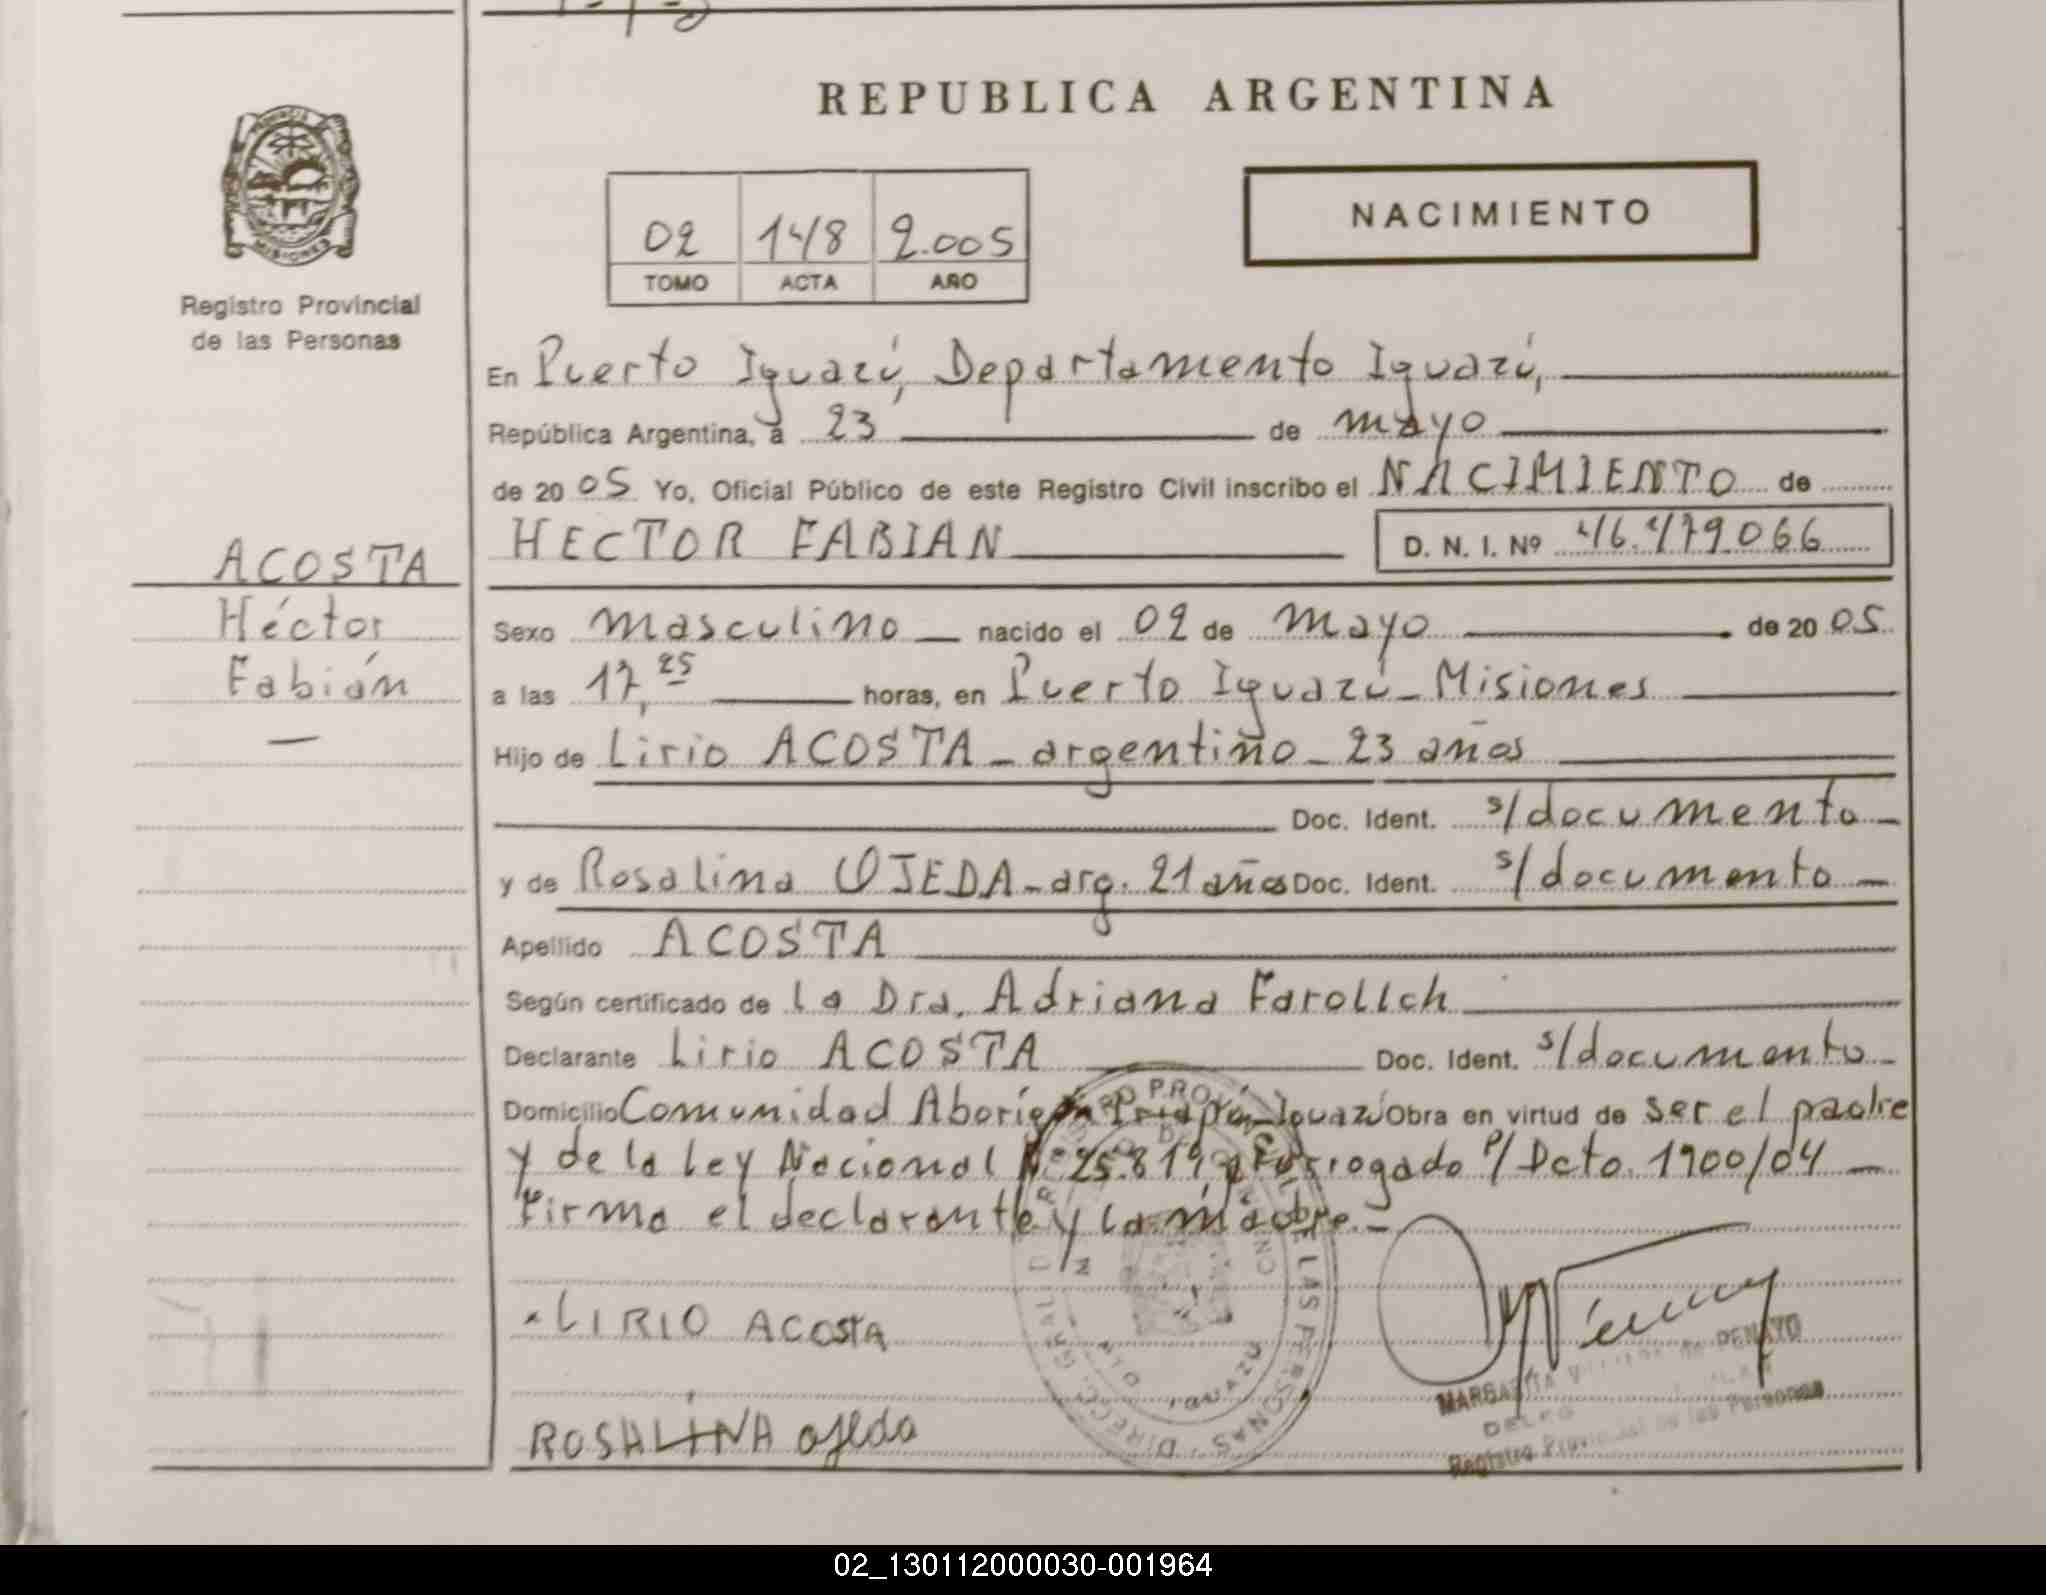 REPUBLICA ARGENTINA
NACIMIENTO
02 148 2.005
TOMO ACTA AÑO
Registro Provincial
de las Personas
En Puerto Iguazú, Departamento Iguazú,
República Argentina, a 23 de mayo
de 2005 Yo, Oficial Público de este Registro Civil inscribo el NACIMIENTO de
HECTOR FABIAN D. N. I. Nº 46.479066
ACOSTA
Héctor
Fabián
Sexo masculino nacido el 02 de mayo de 2005
a las 17,25 horas, en Puerto Iguazú - Misiones
Hijo de Lirio ACOSTA - argentino - 23 años
Doc. Ident. s/documento
y de Rosalina OJEDA - arg. 21 años Doc. Ident. s/documento
Apellido ACOSTA
Según certificado de la Dra. Adriana Farollch
Declarante Lirio ACOSTA Doc. Ident. s/documento
Domicilio Comunidad Aborigen Iguazú Obra en virtud de ser el padre
y de la Ley Nacional Nº 25.819, prorrogado p/ Dcto. 1900/04
Firma el declarante y la madre.-
LIRIO ACOSTA
ROSALINA ojeda
MARGARITA de PENAYO
Registro Provincial de las Personas
DIRECC. GRAL. DEL REGISTRO PROVINCIAL DE LAS PERSONAS
IGUAZU
02_130112000030-001964